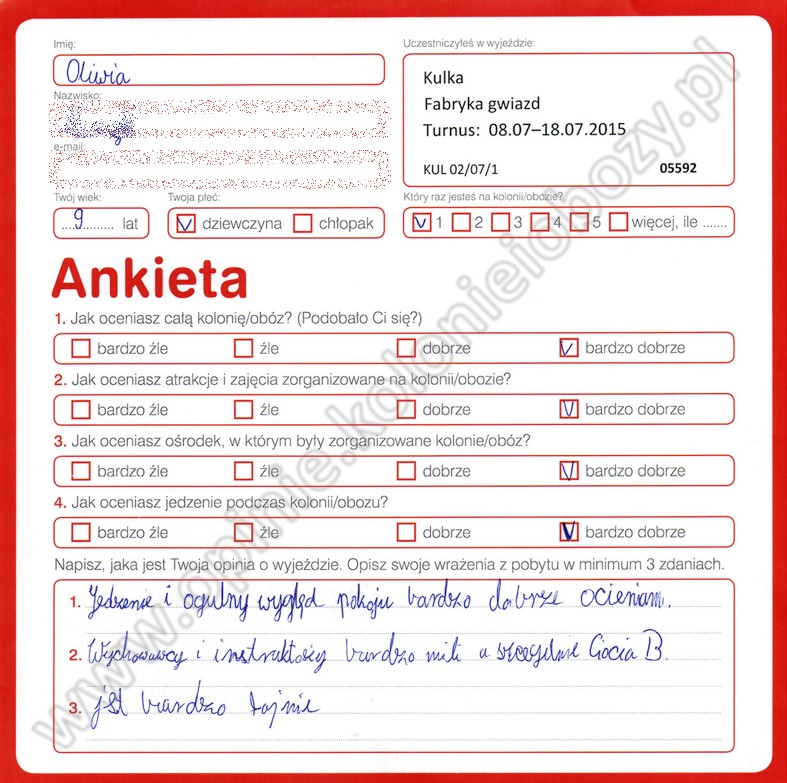 Imię:
Oliwia
Nazwisko:
e-mail:
Twój wiek:
9 lat
Twoja płeć:
dziewczyna chłopak
Uczestniczyłeś w wyjeździe:
Kulka
Fabryka gwiazd
Turnus: 08.07–18.07.2015
KUL 02/07/1 05592
Który raz jesteś na kolonii/obozie?
1 2 3 4 5 więcej, ile .......
Ankieta
1. Jak oceniasz całą kolonię/obóz? (Podobało Ci się?)
bardzo źle źle dobrze bardzo dobrze
2. Jak oceniasz atrakcje i zajęcia zorganizowane na kolonii/obozie?
bardzo źle źle dobrze bardzo dobrze
3. Jak oceniasz ośrodek, w którym były zorganizowane kolonie/obóz?
bardzo źle źle dobrze bardzo dobrze
4. Jak oceniasz jedzenie podczas kolonii/obozu?
bardzo źle źle dobrze bardzo dobrze
Napisz, jaka jest Twoja opinia o wyjeździe. Opisz swoje wrażenia z pobytu w minimum 3 zdaniach.
1. Jedzenie i ogulny wygląd pokoju bardzo dobrze ocieniam.
2. Wychowawcy i instruktoży bardzo mili a szczegulnie Gocia B.
3. jest bardzo fajnie
www.opinie.kolonieiobozy.pl